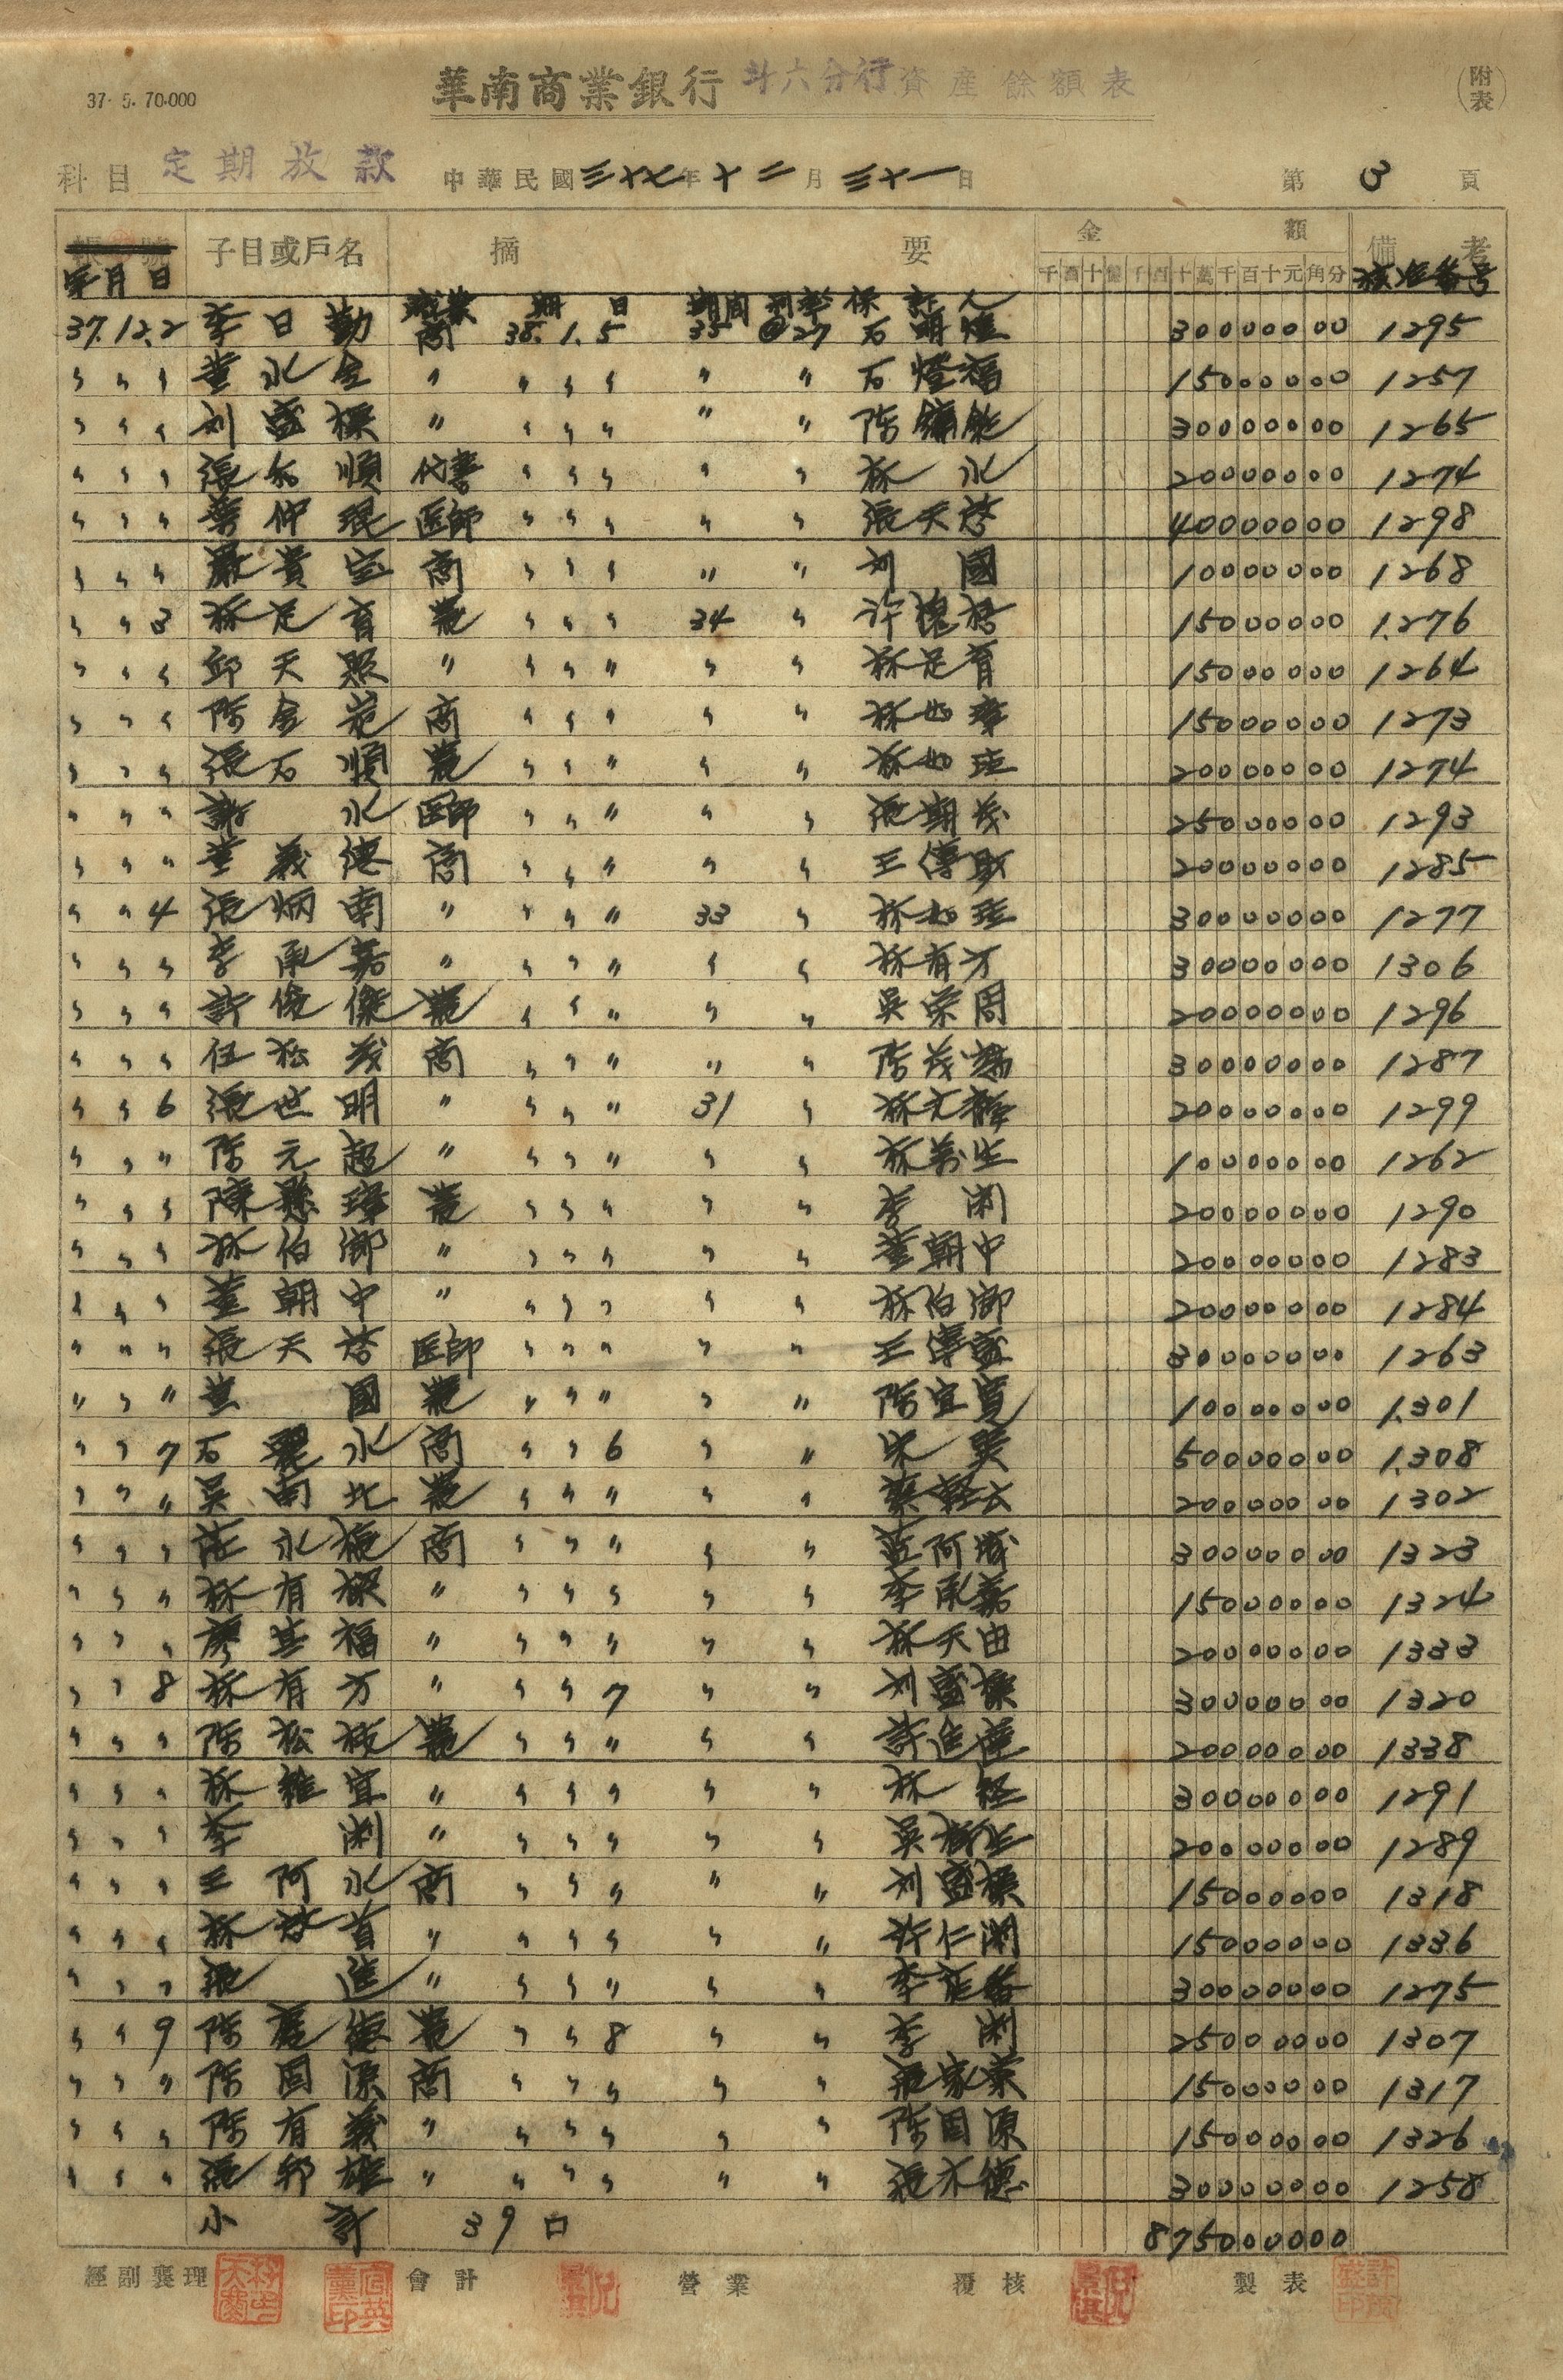 37. 5. 70.000
華南商業銀行 斗六分行 資產餘額表 (附表)
科目 定期放款 中華民國三十七年十二月三十一日 第 3 頁
子目或戶名 摘要 金額 備考
年月日 職業 期日 期間 利率 保証人 千百十億千百十萬千百十元角分 核准番号
37.12.2 李日勤 商 38.1.5 35 @27 石明燈 30000000 1295
〃 〃 〃 董水金 〃 〃 〃 〃 〃 〃 石燈福 15000000 1257
〃 〃 〃 刘盛探 〃 〃 〃 〃 〃 〃 陈 30000000 1265
〃 〃 〃 張石順 代書 〃 〃 〃 〃 〃 林水 20000000 1274
〃 〃 〃 葉仲琨 医師 〃 〃 〃 〃 〃 張天啓 40000000 1298
〃 〃 〃 嚴貴宝 商 〃 〃 〃 〃 〃 刘國 10000000 1268
〃 〃 3 林足育 農 〃 〃 〃 34 〃 许 15000000 1276
〃 〃 〃 邱天照 〃 〃 〃 〃 〃 〃 林足育 15000000 1264
〃 〃 〃 陈金花 商 〃 〃 〃 〃 〃 林如 15000000 1273
〃 〃 〃 張石順 農 〃 〃 〃 〃 〃 林如珪 20000000 1274
〃 〃 〃 謝水 医師 〃 〃 〃 〃 〃 張期茂 25000000 1293
〃 〃 〃 董義德 商 〃 〃 〃 〃 〃 王傳財 20000000 1285
〃 〃 4 張炳南 〃 〃 〃 〃 33 〃 林如珪 30000000 1277
〃 〃 〃 李承嘉 〃 〃 〃 〃 〃 〃 林有方 30000000 1306
〃 〃 〃 許俊傑 農 〃 〃 〃 〃 〃 吳荣周 20000000 1296
〃 〃 〃 伍松茂 商 〃 〃 〃 〃 〃 陈茂 30000000 1287
〃 〃 6 張世明 〃 〃 〃 〃 31 〃 林 20000000 1299
〃 〃 〃 陈元超 〃 〃 〃 〃 〃 〃 林萬生 10000000 1262
〃 〃 〃 陳懸璋 農 〃 〃 〃 〃 〃 李渊 20000000 1290
〃 〃 〃 林伯鄉 〃 〃 〃 〃 〃 〃 董朝中 20000000 1283
〃 〃 〃 董朝中 〃 〃 〃 〃 〃 〃 林伯鄉 20000000 1284
〃 〃 〃 張天啓 医師 〃 〃 〃 〃 〃 王傳盛 30000000 1263
〃 〃 〃 葉國 農 〃 〃 〃 〃 〃 陈宜賓 10000000 1301
〃 〃 7 石麗水 商 〃 〃 6 〃 〃 宋 50000000 1308
〃 〃 〃 吳南北 農 〃 〃 〃 〃 〃 20000000 1302
〃 〃 〃 陈永 商 〃 〃 〃 〃 〃 黃阿城 30000000 1323
〃 〃 〃 林有 〃 〃 〃 〃 〃 〃 李承嘉 15000000 1324
〃 〃 〃 廖其福 〃 〃 〃 〃 〃 〃 林天由 20000000 1333
〃 〃 8 林有方 〃 〃 〃 7 〃 〃 刘盛探 30000000 1320
〃 〃 〃 陈松枝 農 〃 〃 〃 〃 〃 許進 20000000 1338
〃 〃 〃 林維宜 〃 〃 〃 〃 〃 〃 林经 30000000 1291
〃 〃 〃 李渊 〃 〃 〃 〃 〃 〃 吳 20000000 1289
〃 〃 〃 王阿水 商 〃 〃 〃 〃 〃 刘盛探 15000000 1318
〃 〃 〃 林啓 〃 〃 〃 〃 〃 〃 许仁渊 15000000 1336
〃 〃 〃 張進 〃 〃 〃 〃 〃 〃 李 30000000 1275
〃 〃 9 陈慶德 農 〃 〃 8 〃 〃 李渊 25000000 1307
〃 〃 〃 陈固源 商 〃 〃 〃 〃 〃 張家 15000000 1317
〃 〃 〃 陈有義 〃 〃 〃 〃 〃 〃 陈固源 15000000 1326
〃 〃 〃 張邦雄 〃 〃 〃 〃 〃 〃 張木德 30000000 1258
小計 39口 875000000
經副襄理 會計 營業 覆核 製表